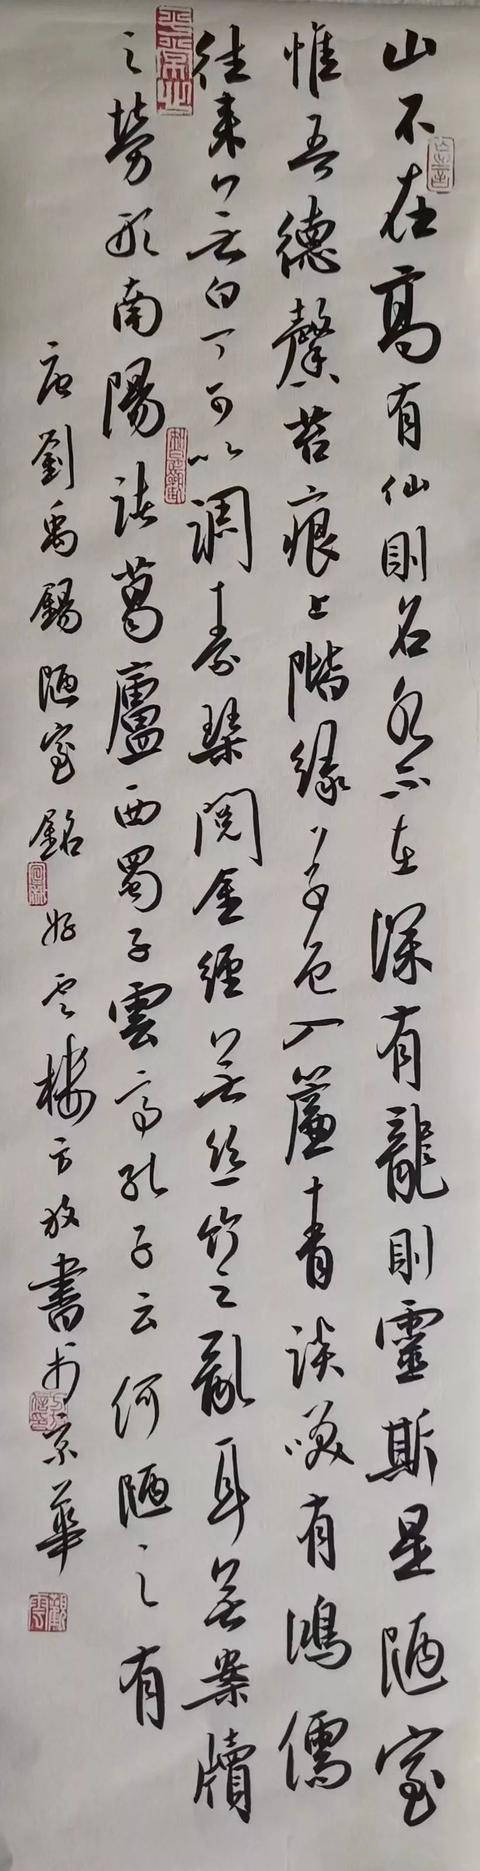 山不在高有仙則名水不在深有龍則靈斯是陋室
惟吾德馨苔痕上階緑草色入簾青談笑有鴻儒
往来無白丁可以調素琴閲金經無絲竹之亂耳無案牘
之勞形南陽諸葛廬西蜀子雲亭孔子云何陋之有
唐劉禹錫陋室銘好云樓方放書於京華